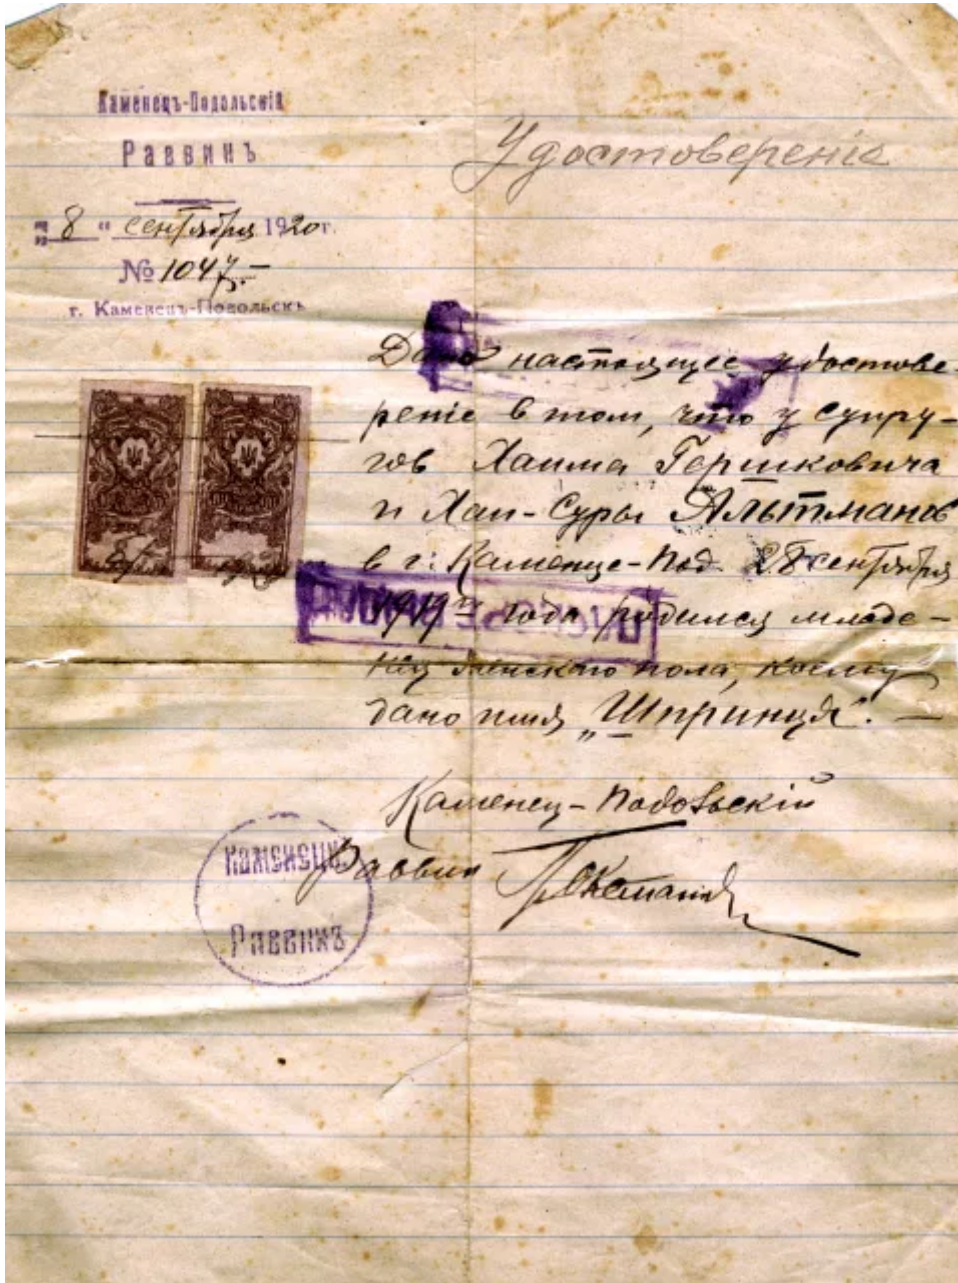 Каменецъ-Подольскій
Раввинъ
"8" сентября 1920 г.
№ 1047.-
г. Каменецъ-Подольскъ
Удостоверенiе
Дано настоящее удостове-
ренiе в том, что у супру-
гов Хаима Гершковича
и Хаи-Суры Альтманов
в г. Каменце-Под. 28 сентября
1919 года родился младе-
нец женскаго пола, коему
дано имя „Шпринця". —
Каменец-Подольскiй
Раввин
Каменецк.
Раввинъ